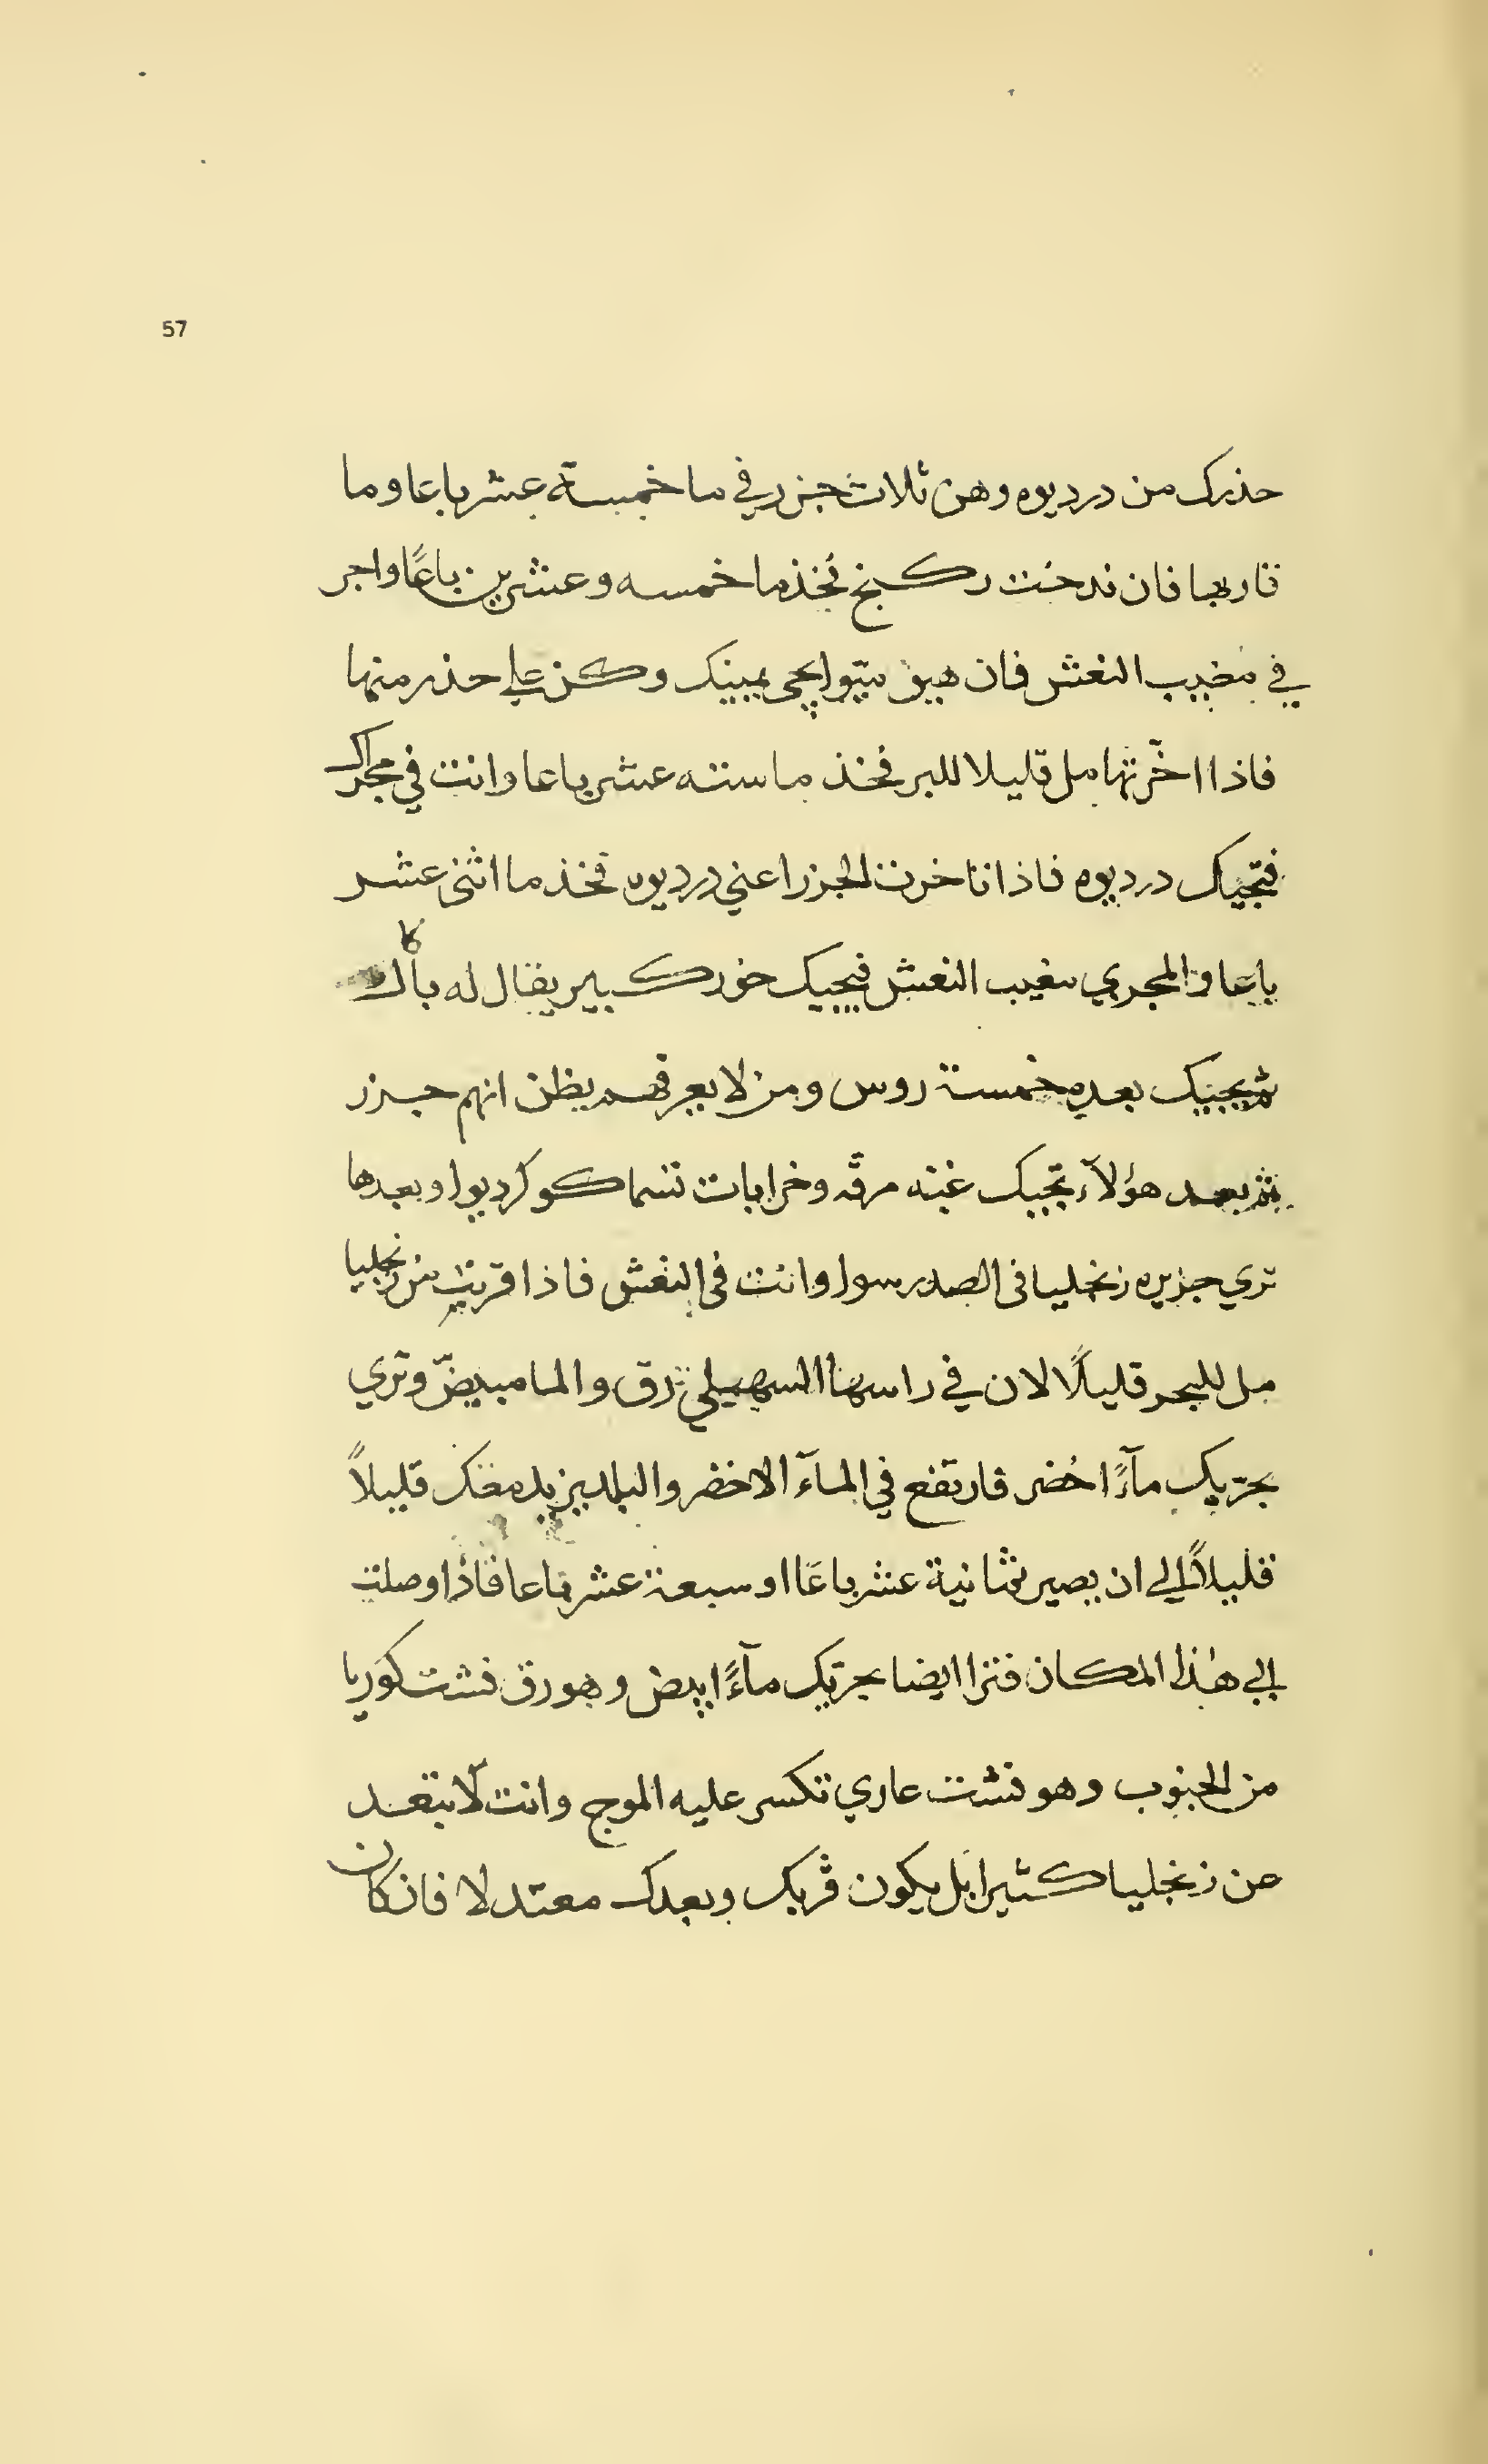 57
حذرك من درديوه وهن ثلاث جزر في ما خمسة عشر باعا وما
قاربها فان ندخت ركنج فخذ ما خمسه وعشرين باعًا واجر
في مغيب النعش فان هيق ميّوا يجي يمينك وكن علي حذر منها
فاذا اخّرتها مل قليلا للبر فخذ ما سته عشر باعا وانت في مجراك
فتجيك درديوه فاذا تاخرت الجزر اعني درديوه فخذ ما اثنى عشر
باعا والمجري مغيب النعش فيجيك خور كبير يقال له باك
ثم يجيك بعده خمسة روس ومن لا يعرفهم يظن انهم جزر
ثم بعد هؤلآء تجيك غبّه مرقّه وخرابات تسما كوكرديوا وبعدها
تري جزيره زنجليا في الصدر سوا وانت في النعش فاذا قربت من زنجليا
مل للبحر قليلًا لان في راسها السهيلي رق والما مبيضّ وتري
بحرّيك مآءً اخضر فارتفع في المآء الاخضر والبلد يزيد معك قليلاً
قليلاً الي ان يصير ثمانية عشر باعًا او سبعة عشر باعا فاذا وصلت
الي هذا المكان فترا ايضا بحريّك مآءً ابيض وهو رق فشت كوريا
من الجنوب وهو فشت عاري تكسر عليه الموج وانت لا تبتعد
عن زنجليا كثيرا بل يكون قربك وبعدك معتدلا فان كان